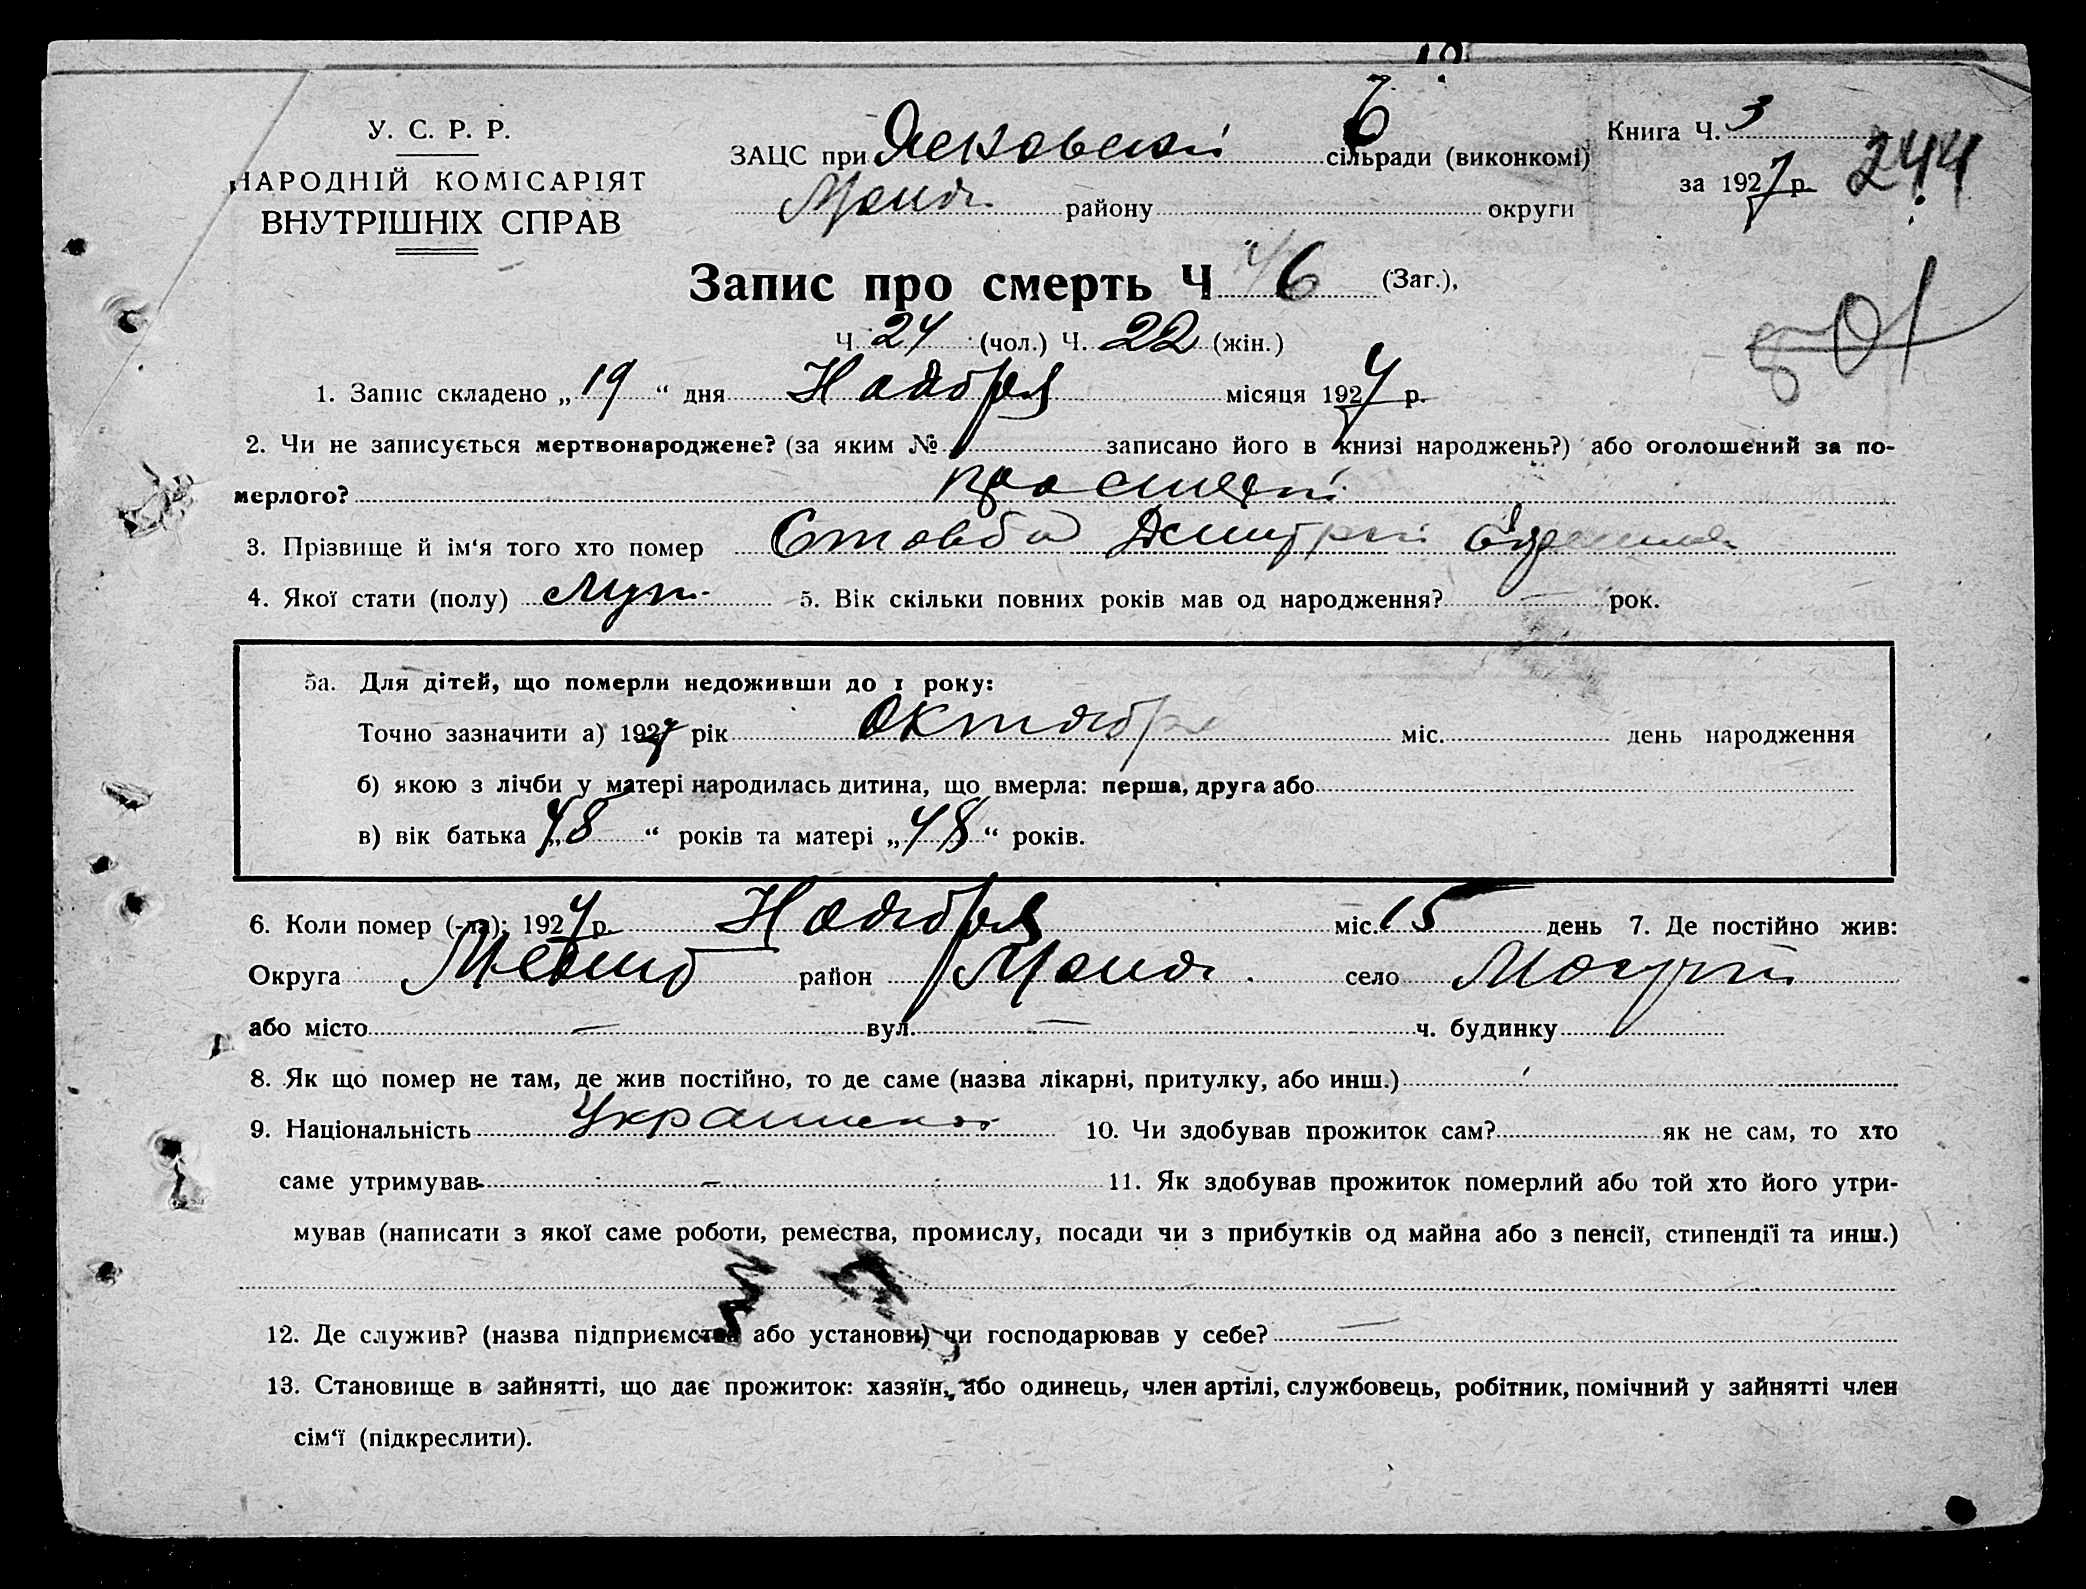 У. С. Р. Р.
НАРОДНІЙ КОМІСАРІЯТ
ВНУТРІШНІХ СПРАВ
ЗАЦС при Ясковской 6 сільради (виконкомі)
району округи
Книга Ч. 3
за 1927 р. 244
Запис про смерть Ч 46 (Заг.),
501
Ч 24 (чол.) Ч. 22 (жін.)
1. Запис складено „ 19 “ дня Ноября місяця 1927 р.
2. Чи не записується мертвонароджене? (за яким № записано його в книзі народжень?) або оголошений за по-
мерлого?
3. Прізвище й ім‘я того хто помер Стовба Дмитрий
4. Якої стати (полу) муж. 5. Вік скільки повних років мав од народження? — рок.
5а. Для дітей, що померли недоживши до 1 року:
Точно зазначити а) 1927 рік Октября міс. день народження
б) якою з лічби у матері народилась дитина, що вмерла: перша, друга або
в) вік батька „ 48 “ років та матері „ 48 “ років.
6. Коли помер (-ла): 1927 р. Ноября міс. 15 день 7. Де постійно жив:
Округа район село
або місто — вул. — ч. будинку
8. Як що помер не там, де жив постійно, то де саме (назва лікарні, притулку, або инш.)
9. Національність 10. Чи здобував прожиток сам? як не сам, то хто
саме утримував — 11. Як здобував прожиток померлий або той хто його утри-
мував (написати з якої саме роботи, ремества, промислу, посади чи з прибутків од майна або з пенсії, стипендії та инш.)
12. Де служив? (назва підприємства або установи) чи господарював у себе? —
13. Становище в зайнятті, що дає прожиток: хазяїн, або одинець, член артілі, службовець, робітник, помічний у зайнятті член
сім‘ї (підкреслити).